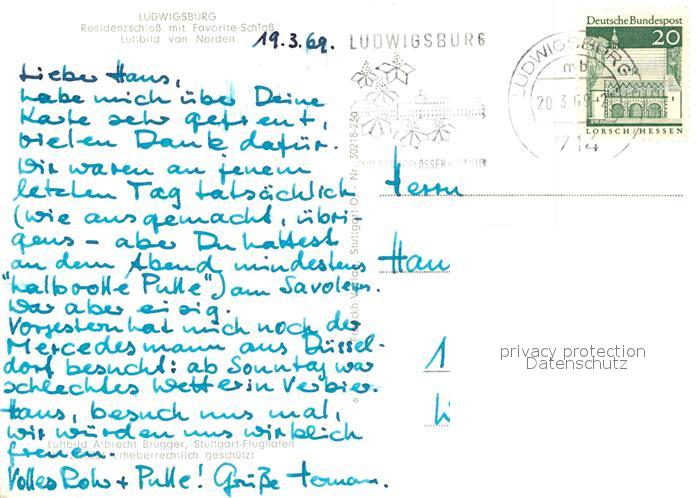 LUDWIGSBURG
Residenzschloß mit Favorite-Schloß
Luftbild von Norden
19.3.69.
Lieber Hans,
habe mich über Deine
Karte sehr gefreut,
vielen Dank dafür.
Wir waren an jenem
letzten Tag tatsächlich
(wie ausgemacht, übri-
gens - aber Du hattest
an dem Abend mindestens
"halbvolle Pulle") am Savoleyes.
War aber eisig.
Vorgestern hat mich noch der
Mercedesmann aus Düssel-
dorf besucht: ab Sonntag war
schlechtes Wetter in Verbier.
Hans, besuch uns mal,
wir würden uns wirklich
freuen.
Volles Rohr + Pulle! Grüße Hermann.
Luftbild Albrecht Brugger, Stuttgart-Flughafen
urheberrechtlich geschützt
Stuttgart-O - Nr. 30218-230
LUDWIGSBURG
LUDWIGSBURG
mb
20.3.69
714
Deutsche Bundespost
20
LORSCH/HESSEN
Herrn
Han
1
privacy protection
Datenschutz